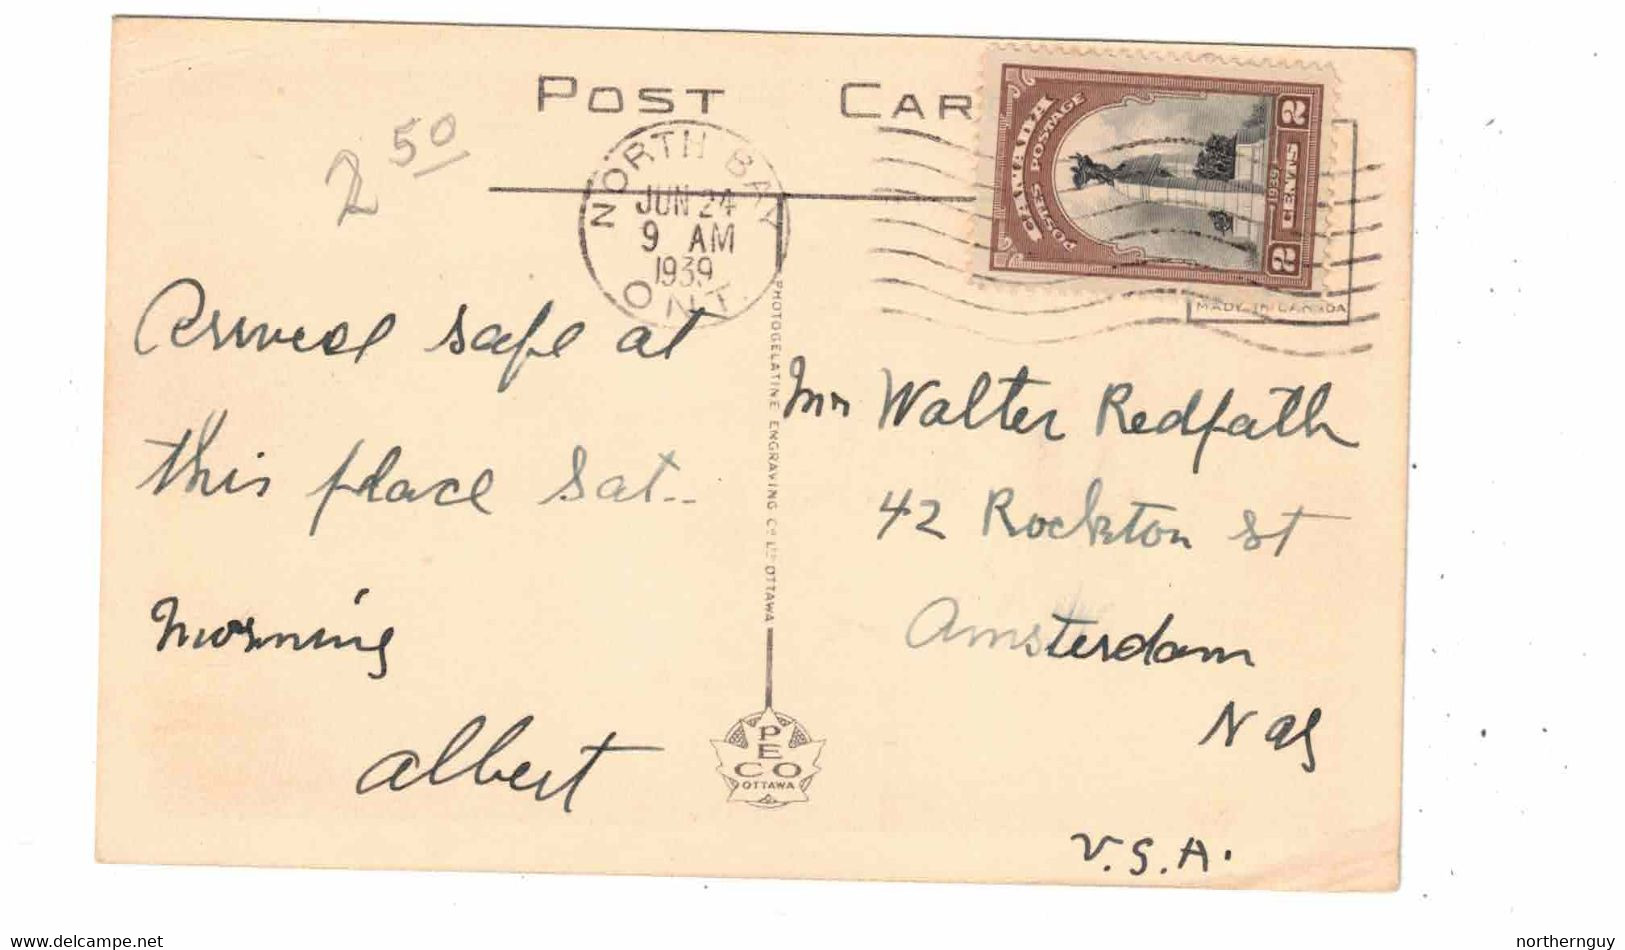 POST CARD
2 50
NORTH BAY
JUN 24
9 AM
1939
ONT.
CANADA
POSTES POSTAGE
2 CENTS 2
1939
MADE IN CANADA
Arrived safe at
this place Sat.
Morning
Albert
PHOTOGELATINE ENGRAVING CO LTD OTTAWA
PECO
OTTAWA
Mr Walter Redpath
42 Rockton St
Amsterdam
N Y
U.S.A.
northernguy
delcampe.net